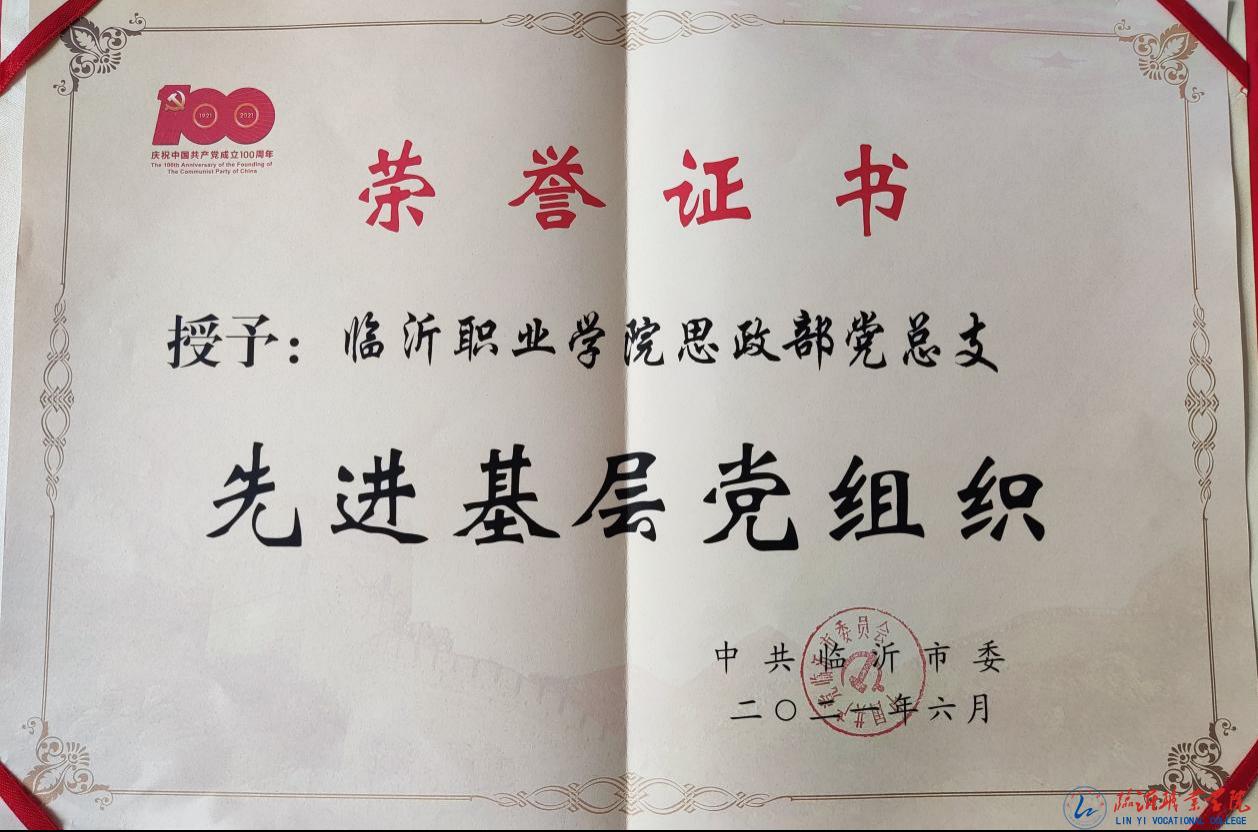 100
1921 2021
庆祝中国共产党成立100周年
The 100th Anniversary of the Founding of
The Communist Party of China
荣誉证书
授予：临沂职业学院思政部党总支
先进基层党组织
中共临沂市委
二〇二一年六月
中国共产党临沂市委员会
临沂职业学院
LIN YI VOCATIONAL COLLEGE